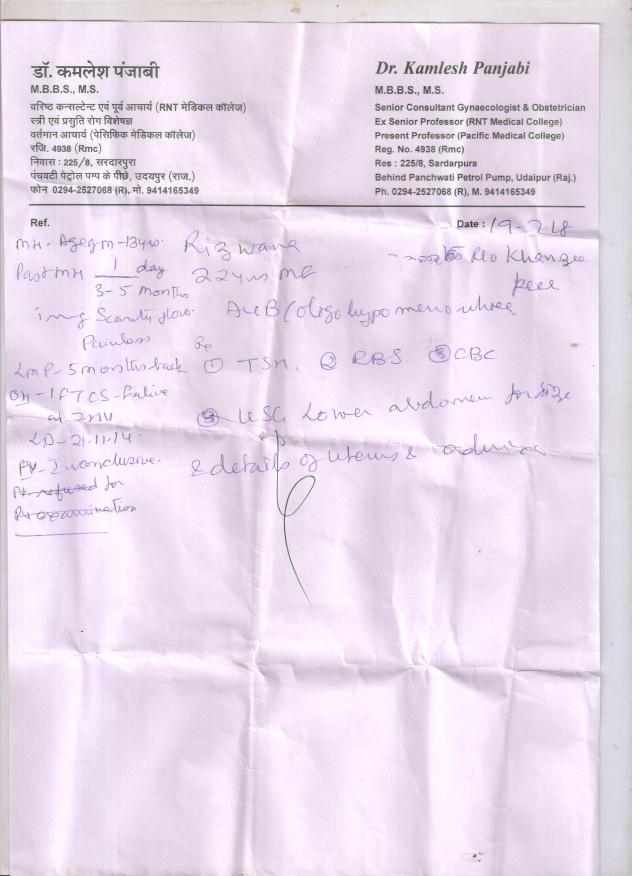 डॉ. कमलेश पंजाबी
M.B.B.S., M.S.
वरिष्ठ कन्सल्टेन्ट एवं पूर्व आचार्य (RNT मेडिकल कॉलेज)
स्त्री एवं प्रसुति रोग विशेषज्ञ
वर्तमान आचार्य (पेसिफिक मेडिकल कॉलेज)
रजि. 4938 (Rmc)
निवास : 225/8, सरदारपुरा
पंचवटी पेट्रोल पम्प के पीछे, उदयपुर (राज.)
फोन 0294-2527068 (R), मो. 9414165349
Dr. Kamlesh Panjabi
M.B.B.S., M.S.
Senior Consultant Gynaecologist & Obstetrician
Ex Senior Professor (RNT Medical College)
Present Professor (Pacific Medical College)
Reg. No. 4938 (Rmc)
Res : 225/8, Sardarpura
Behind Panchwati Petrol Pump, Udaipur (Raj.)
Ph. 0294-2527068 (R), M. 9414165349
Ref.
Date :
MH - Age of m - 13yrs.
Past MH 1 day
3-5 months
Scanty flow.
Painless
LMP - 5 months back
OH - 1 FTCS - f alive
at
LD - 21.11.14.
PV - Inconclusive.
Pt refused for
Pr examination
Rizwana
22yrs
R/o Khanjee
peer
AUB/oligo hypo menorrhea
① TSH. ② RBS. ③ CBC
USG Lower abdomen for size
& details of uterus & adnexa